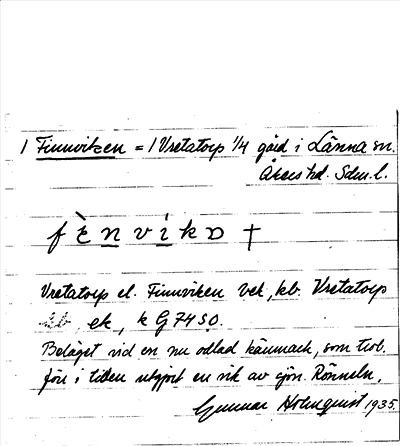 1 Finnviken = 1 Vretatorp 1/4 gård i Länna sn.
Åkers hd. Sdm.l.
fènvìkɒ †
Vretatorp el. Finnviken vek, kb. Vretatorp
ek, k G 74 SO.
Beläget vid en nu odlad kärrmark, som trol.
förr i tiden utgjort en vik av sjön Rönneln.
Gunnar Holmquist 1935.